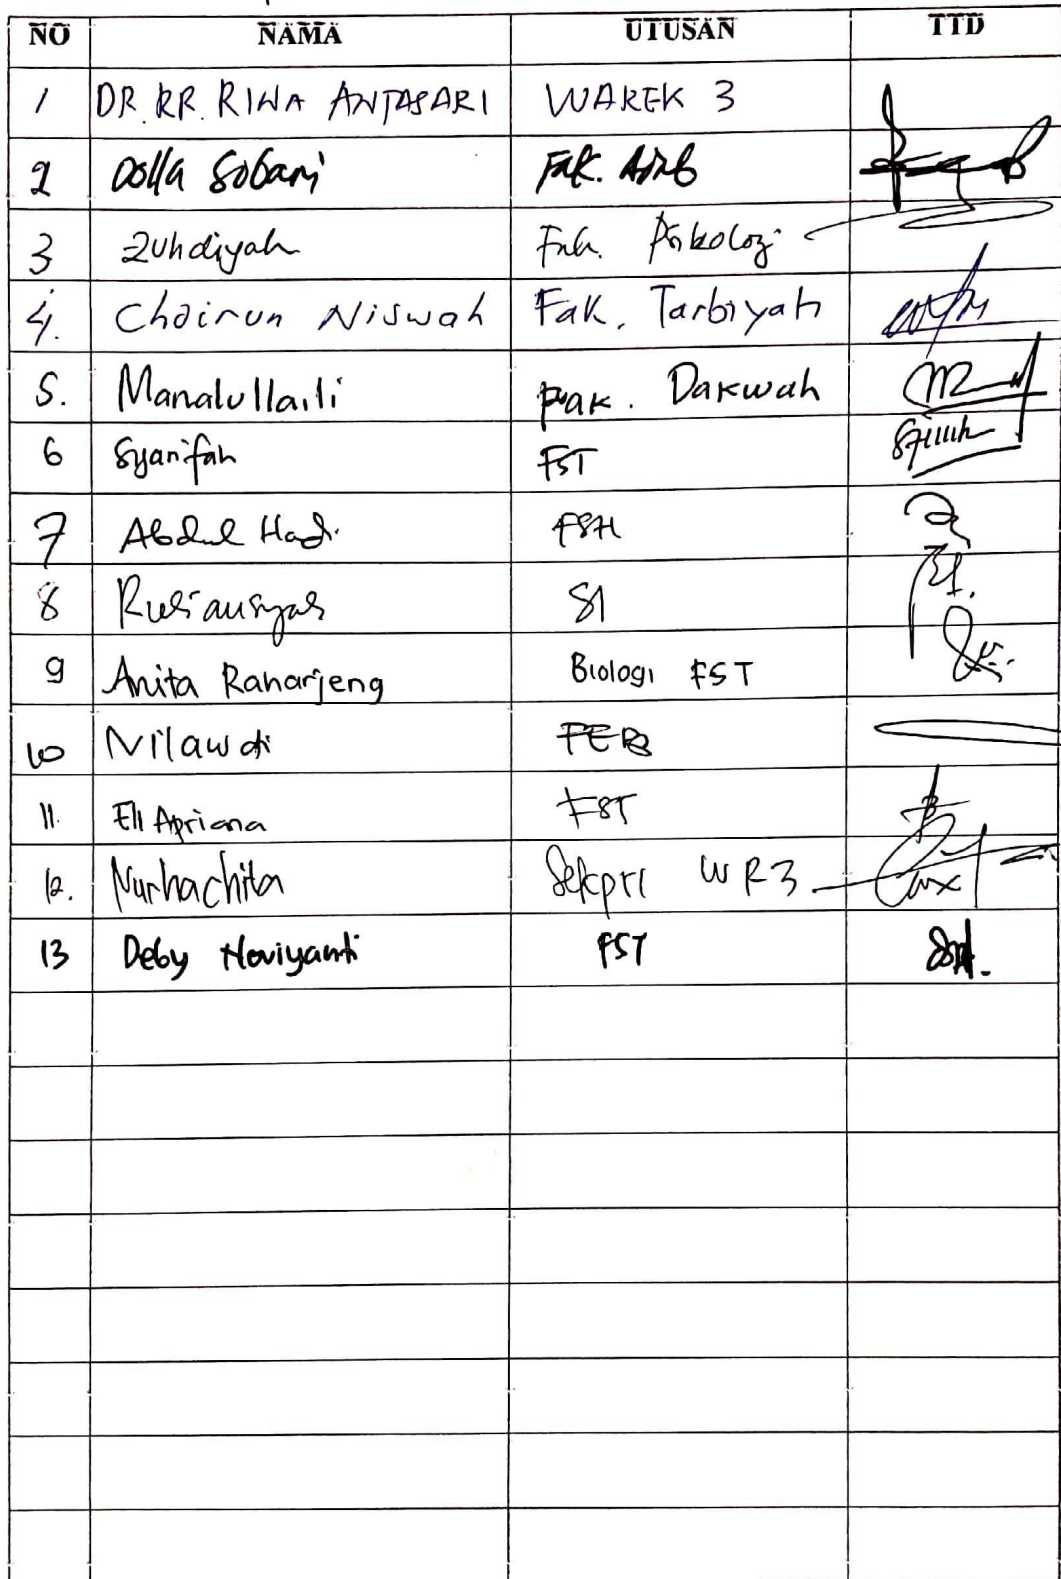 NO NAMA UTUSAN TTD
1 DR. RR. RINA ANTASARI WAREK 3
2 Dolla Sobari Fak. Adab
3 Zuhdiyah Fak. Psikologi
4. Choirun Niswah Fak. Tarbiyah
5. Manalullaili Fak. Dakwah
6 Syarifah FST
7 Abdul Hadi FSH
8 SI
9 Anita Raharjeng Biologi FST
10 Nilawati FEBI
11. Eli Apriana FST
12. Nurhachita Sekpri WR3
13 Deby Noviyanti FST